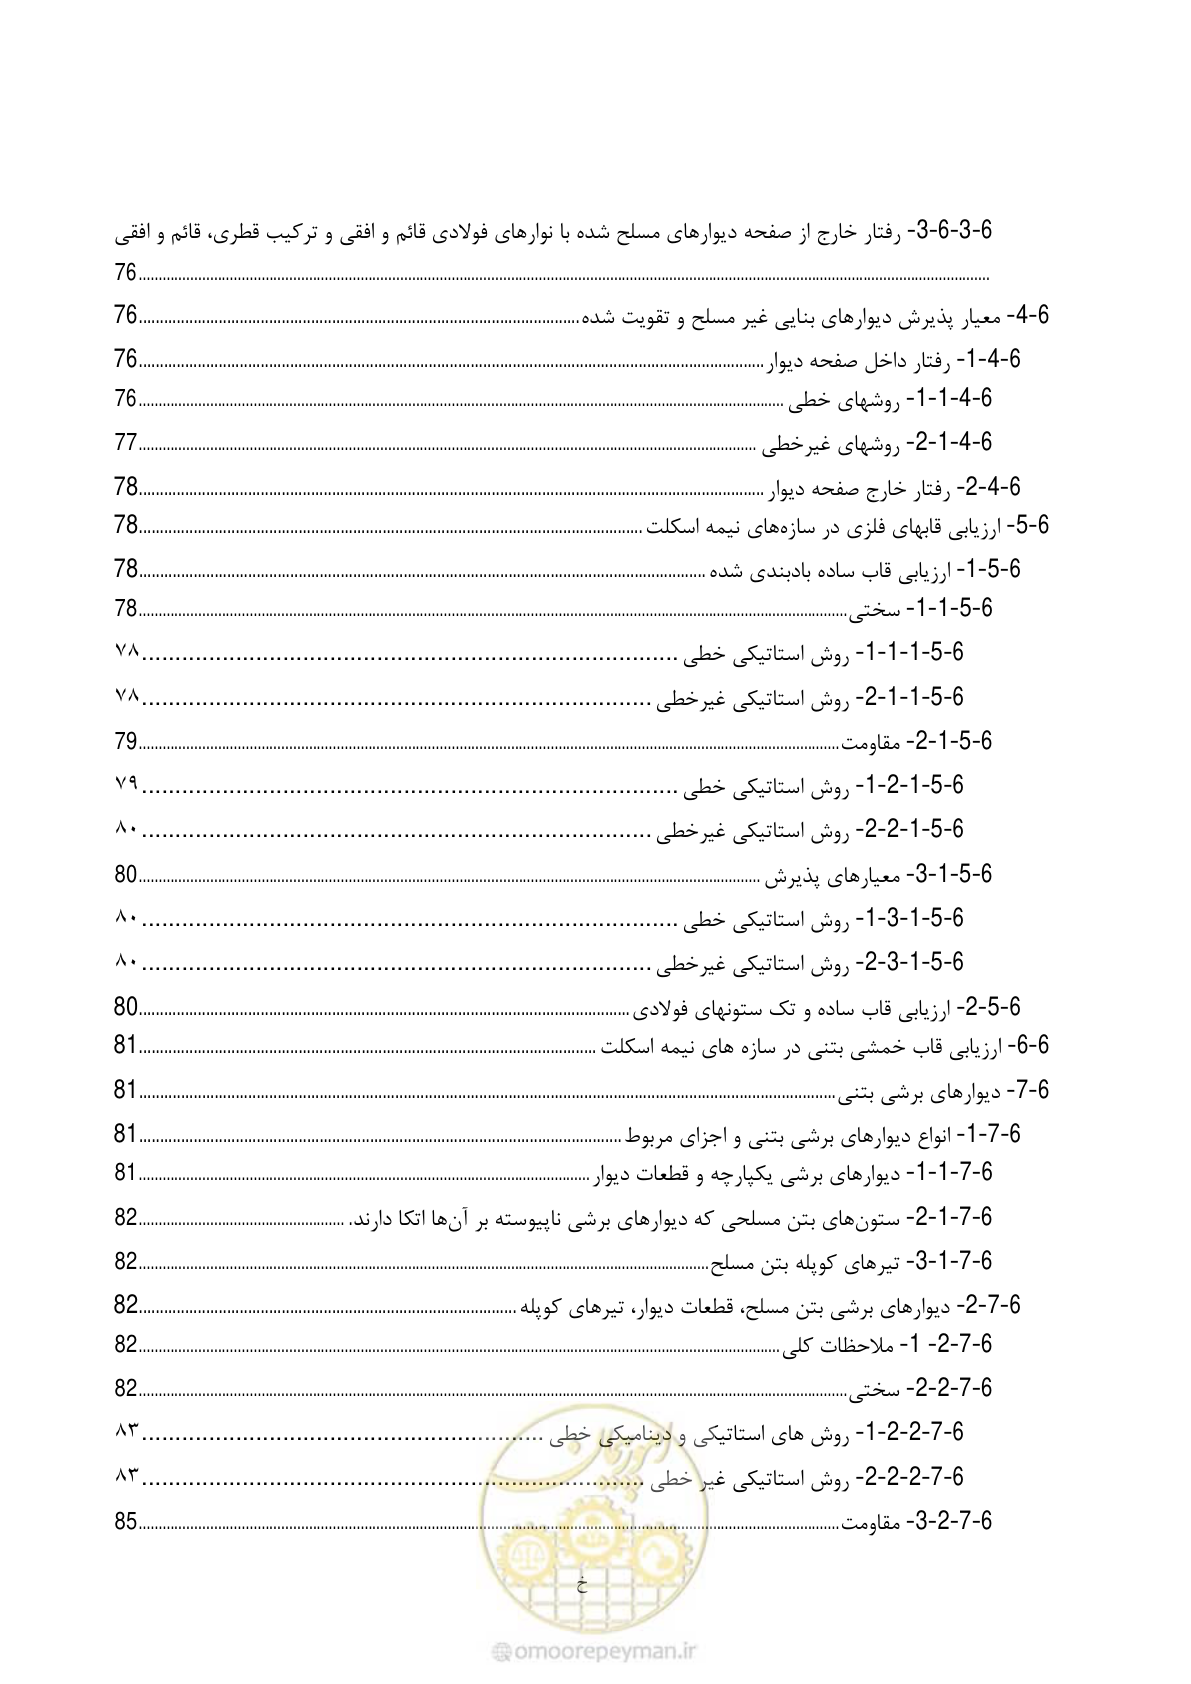 6-3-6-3- رفتار خارج از صفحه دیوارهای مسلح شده با نوارهای فولادی قائم و افقی و ترکیب قطری، قائم و افقی
........................................ 76
6-4- معیار پذیرش دیوارهای بنایی غیر مسلح و تقویت شده ........................................ 76
6-4-1- رفتار داخل صفحه دیوار ........................................ 76
6-4-1-1- روشهای خطی ........................................ 76
6-4-1-2- روشهای غیرخطی ........................................ 77
6-4-2- رفتار خارج صفحه دیوار ........................................ 78
6-5- ارزیابی قابهای فلزی در سازه‌های نیمه اسکلت ........................................ 78
6-5-1- ارزیابی قاب ساده بادبندی شده ........................................ 78
6-5-1-1- سختی ........................................ 78
6-5-1-1-1- روش استاتیکی خطی ........................................ ۷۸
6-5-1-1-2- روش استاتیکی غیرخطی ........................................ ۷۸
6-5-1-2- مقاومت ........................................ 79
6-5-1-2-1- روش استاتیکی خطی ........................................ ۷۹
6-5-1-2-2- روش استاتیکی غیرخطی ........................................ ۸۰
6-5-1-3- معیارهای پذیرش ........................................ 80
6-5-1-3-1- روش استاتیکی خطی ........................................ ۸۰
6-5-1-3-2- روش استاتیکی غیرخطی ........................................ ۸۰
6-5-2- ارزیابی قاب ساده و تک ستونهای فولادی ........................................ 80
6-6- ارزیابی قاب خمشی بتنی در سازه های نیمه اسکلت ........................................ 81
6-7- دیوارهای برشی بتنی ........................................ 81
6-7-1- انواع دیوارهای برشی بتنی و اجزای مربوط ........................................ 81
6-7-1-1- دیوارهای برشی یکپارچه و قطعات دیوار ........................................ 81
6-7-1-2- ستون‌های بتن مسلحی که دیوارهای برشی ناپیوسته بر آن‌ها اتکا دارند. ........................................ 82
6-7-1-3- تیرهای کوپله بتن مسلح ........................................ 82
6-7-2- دیوارهای برشی بتن مسلح، قطعات دیوار، تیرهای کوپله ........................................ 82
6-7-2- 1- ملاحظات کلی ........................................ 82
6-7-2-2- سختی ........................................ 82
6-7-2-2-1- روش های استاتیکی و دینامیکی خطی ........................................ ۸۳
6-7-2-2-2- روش استاتیکی غیر خطی ........................................ ۸۳
6-7-2-3- مقاومت ........................................ 85
امور پیمان
خ
@omoorepeyman.ir